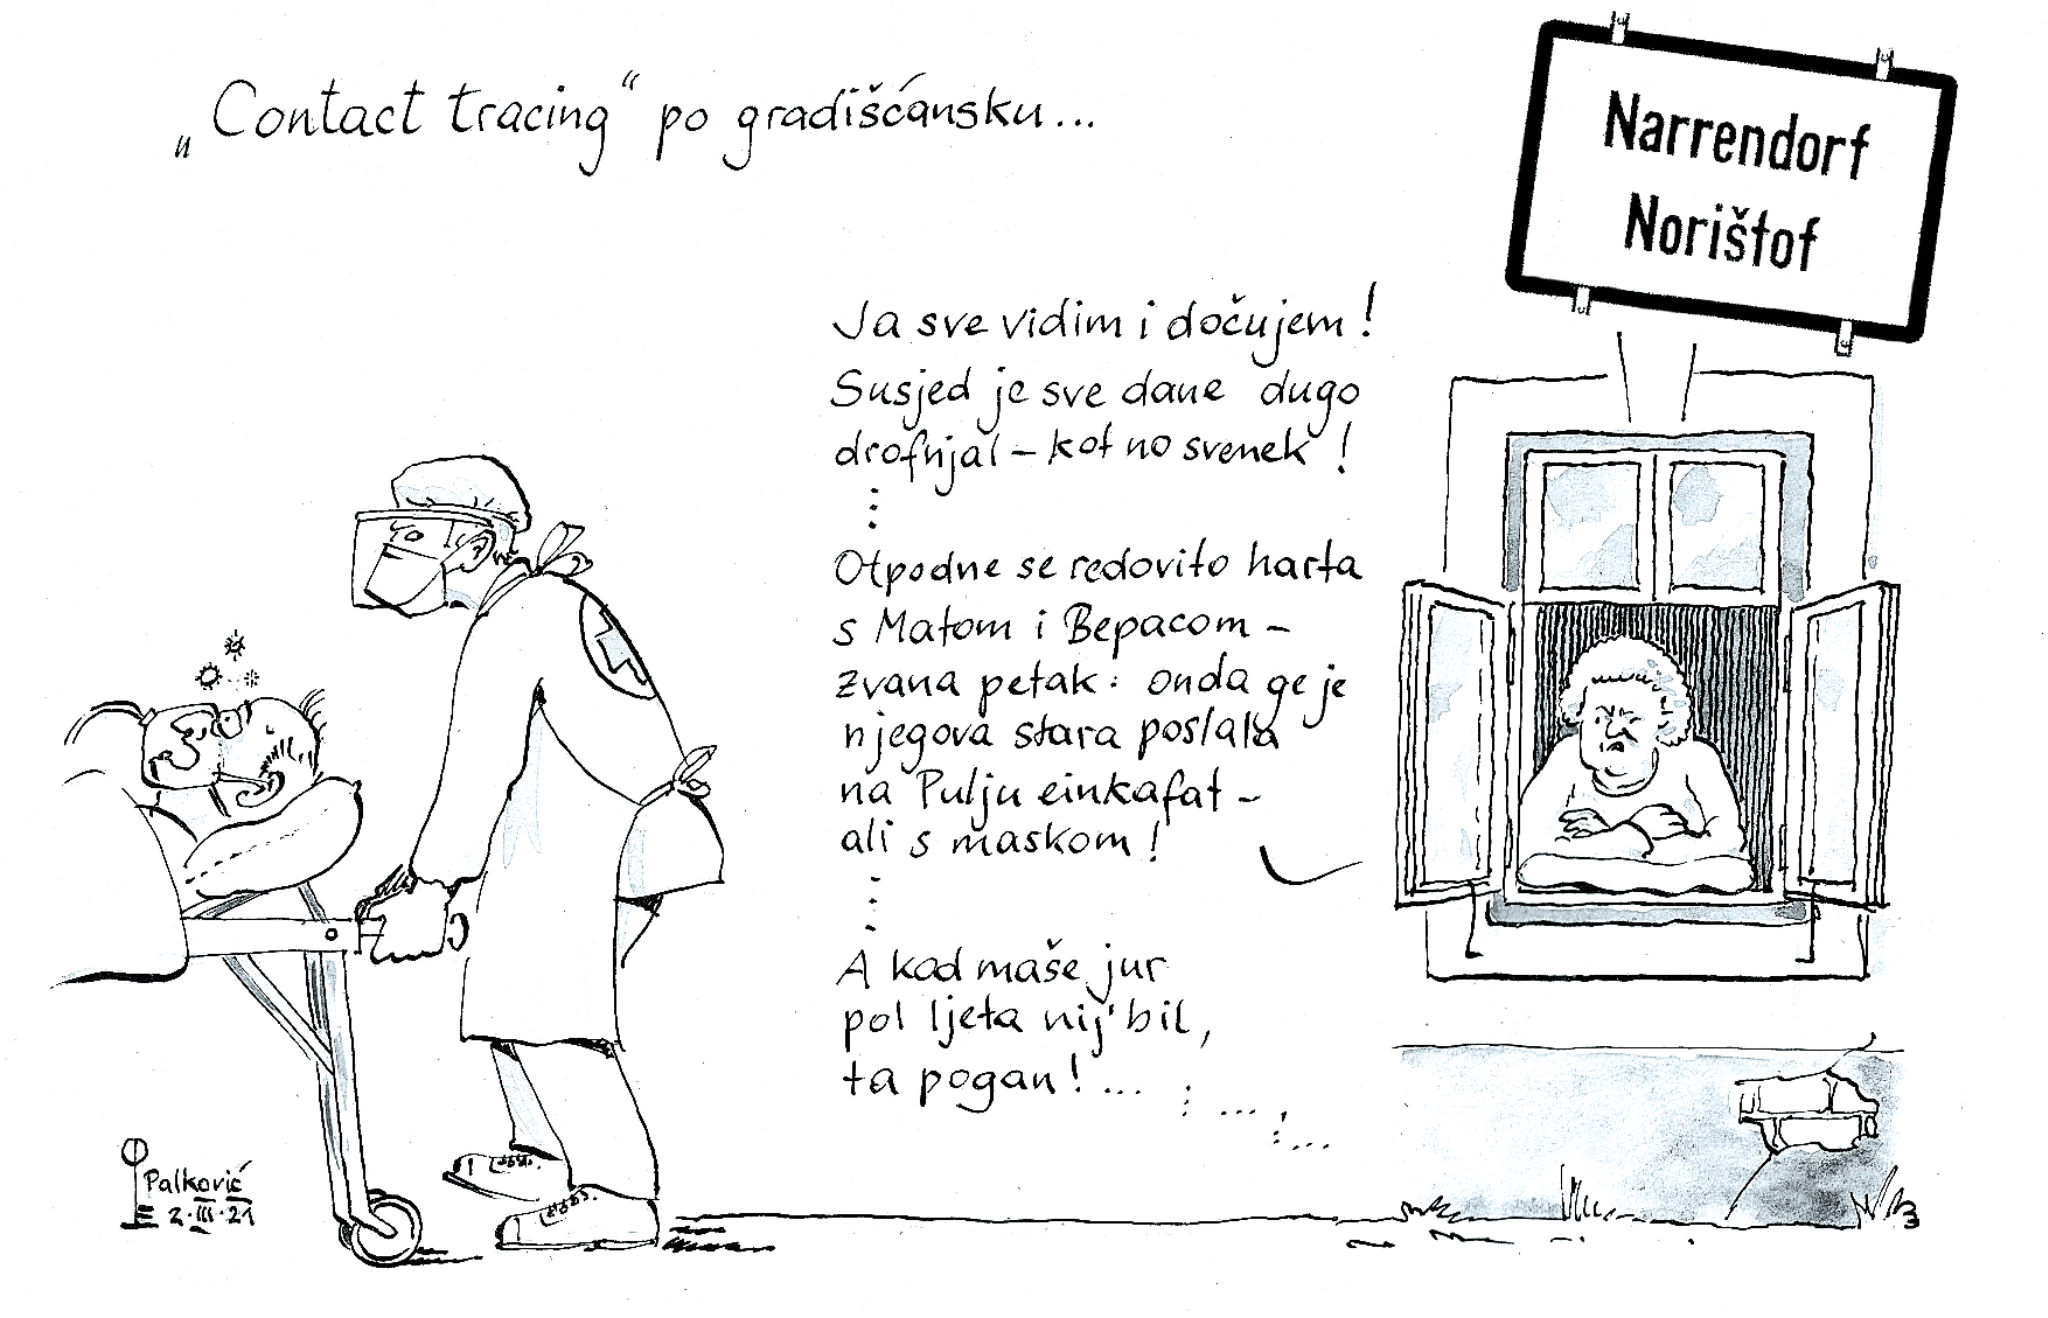 „Contact tracing“ po gradišćansku...
Narrendorf
Norištof
Ja sve vidim i dočujem!
Susjed je sve dane dugo
drofnjal – kot no svenek!
Otpodne se redovito harta
s Matom i Bepacom –
zvana petak: onda ge je
njegova stara poslala
na Pulju einkafat –
ali s maskom!
A kad maše jur
pol ljeta nij' bil,
ta pogan!...
Palković
2·III·21